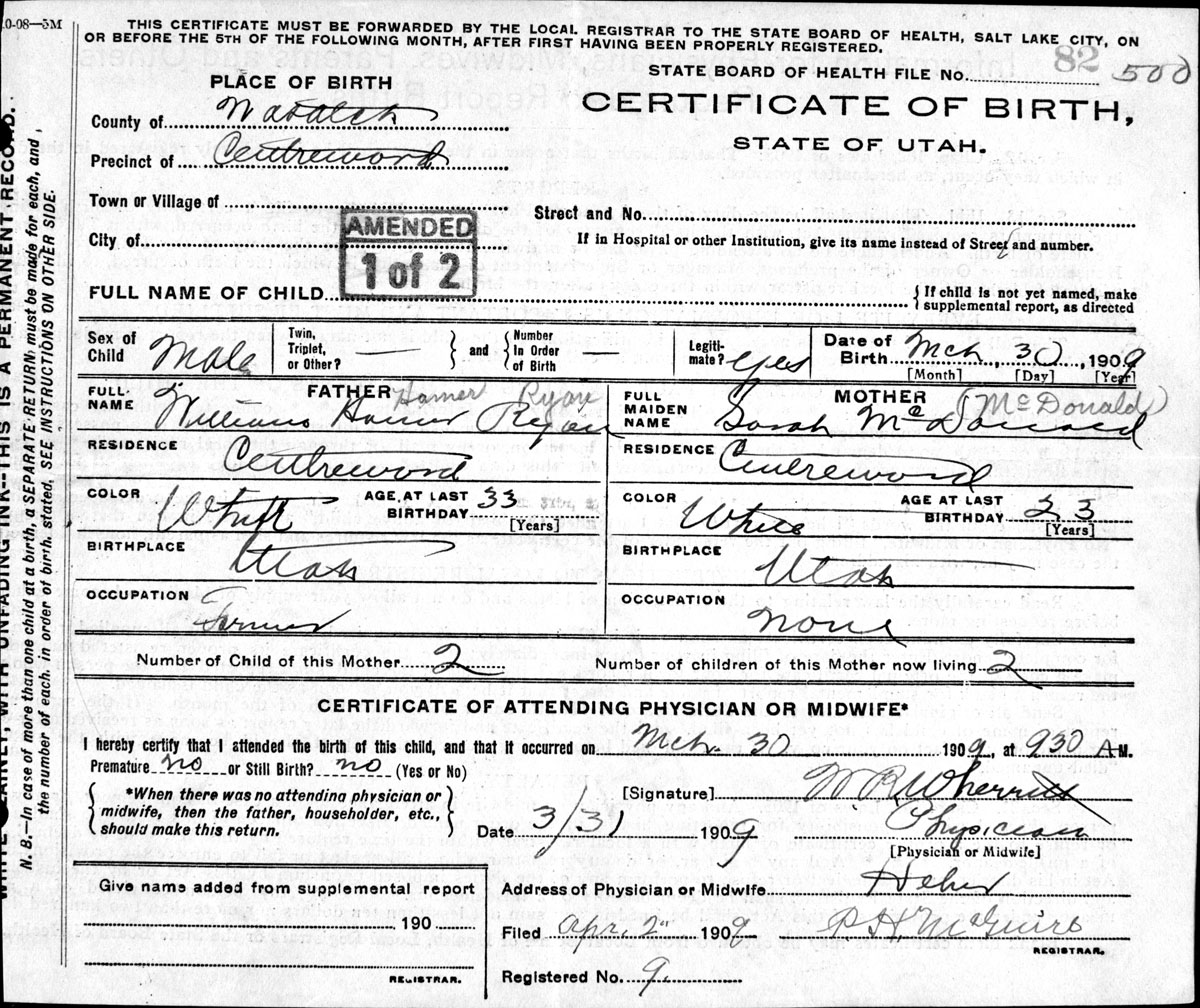 .0-08—5M
THIS CERTIFICATE MUST BE FORWARDED BY THE LOCAL REGISTRAR TO THE STATE BOARD OF HEALTH, SALT LAKE CITY, ON
OR BEFORE THE 5TH OF THE FOLLOWING MONTH, AFTER FIRST HAVING BEEN PROPERLY REGISTERED.
PLACE OF BIRTH
STATE BOARD OF HEALTH FILE No. 82 500
County of Wasatch
CERTIFICATE OF BIRTH,
Precinct of
STATE OF UTAH.
Town or Village of
Street and No.
AMENDED
1 of 2
City of
If in Hospital or other Institution, give its name instead of Street and number.
FULL NAME OF CHILD
{ If child is not yet named, make
supplemental report, as directed
Sex of Child Male
Twin, Triplet, or Other? —
} and {
Number In Order of Birth —
Legiti-mate? yes
Date of Birth Mch, 30, 1909
[Month] [Day] [Year]
FULL NAME FATHER Homer Ryan
William Homer Ryan
FULL MAIDEN NAME MOTHER (McDonald)
Sarah McDonald
RESIDENCE
RESIDENCE
COLOR White
AGE AT LAST BIRTHDAY 33
[Years]
COLOR White
AGE AT LAST BIRTHDAY 23
[Years]
BIRTHPLACE Utah
BIRTHPLACE Utah
OCCUPATION Farmer
OCCUPATION none
Number of Child of this Mother 2
Number of children of this Mother now living 2
CERTIFICATE OF ATTENDING PHYSICIAN OR MIDWIFE*
I hereby certify that I attended the birth of this child, and that it occurred on Mch. 30 1909, at 930 A M.
Premature no or Still Birth? no (Yes or No)
{ *When there was no attending physician or
midwife, then the father, householder, etc.,
should make this return. }
[Signature] W R Wherritt
Date 3/31 1909 Physician
[Physician or Midwife]
Give name added from supplemental report
190
REGISTRAR.
Address of Physician or Midwife Heber
Filed Apr. 2" 1909 P H McGuire
REGISTRAR.
Registered No. 9.
WITH UNFADING INK--THIS IS A PERMANENT RECORD.
N. B.—In case of more than one child at a birth, a SEPARATE RETURN must be made for each, and
the number of each, in order of birth, stated, SEE INSTRUCTIONS ON OTHER SIDE.